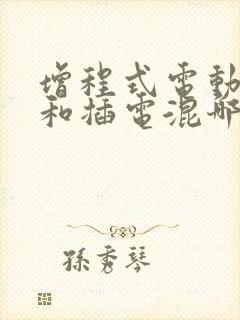 增程式電動
和插電混哪
孫秀琴